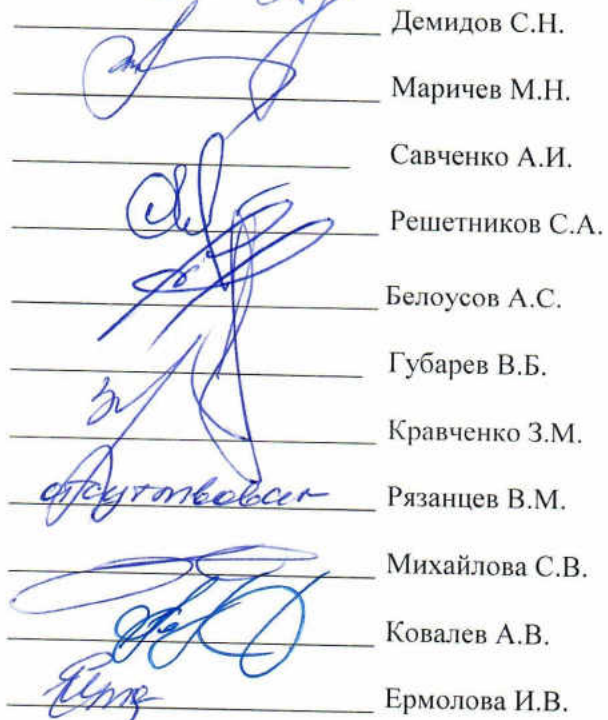 Демидов С.Н.
Маричев М.Н.
Савченко А.И.
Решетников С.А.
Белоусов А.С.
Губарев В.Б.
Кравченко З.М.
отсутствовал Рязанцев В.М.
Михайлова С.В.
Ковалев А.В.
Ермолова И.В.